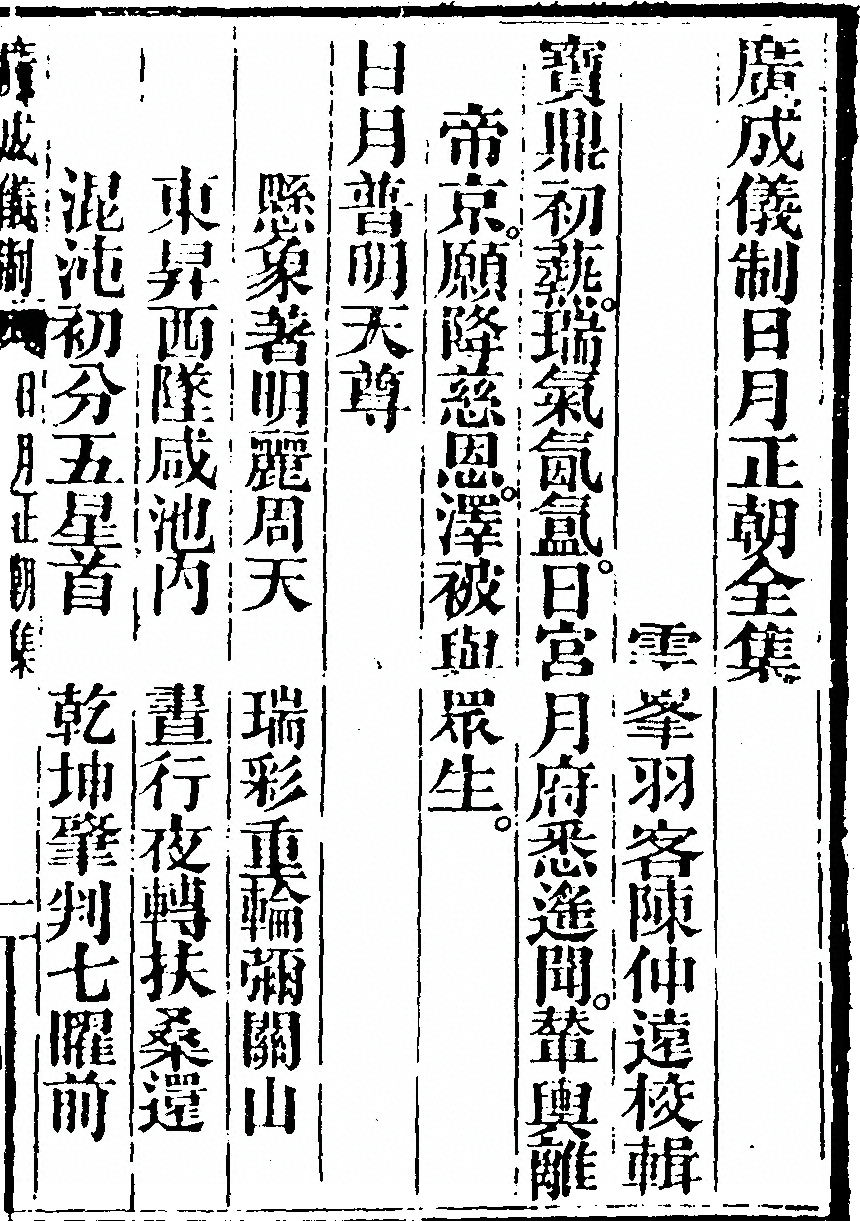 廣成儀制日月正朝全集
雲峯羽客陳仲遠校輯
寶鼎初爇。瑞氣氤氳。日宮月府悉遙聞。輦輿離
帝京。願降慈恩。澤被與眾生。
日月普明天尊
懸象著明麗周天　瑞彩重輪彌關山
東昇西墜咸池內　晝行夜轉扶桑還
混沌初分五星首　乾坤肇判七曜前
廣成儀制 日月正朝集